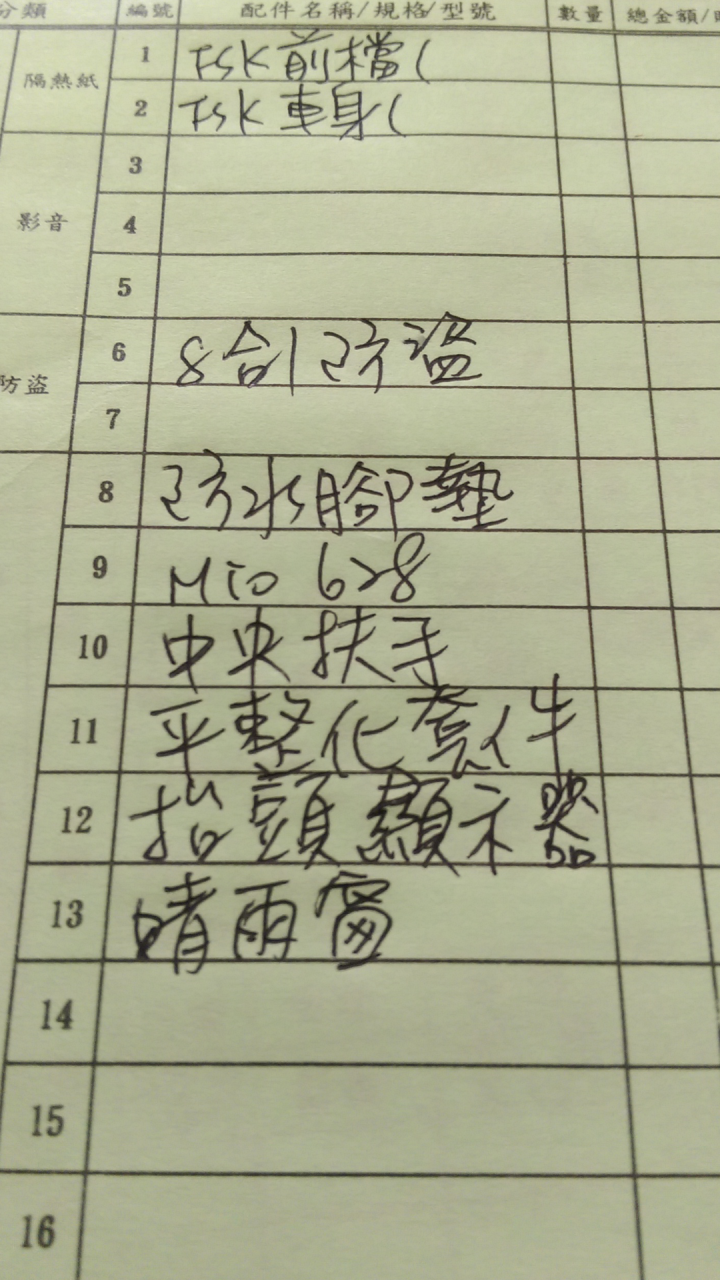 分類 編號 配件名稱/規格/型號 數量 總金額/
隔熱紙
1 FSK前檔(
2 FSK車身(
影音
3
4
5
防盜
6 8合1防盜
7
8 防水腳墊
9 Mio 628
10 中央扶手
11 平整化套件
12 抬頭顯示器
13 晴雨窗
14
15
16